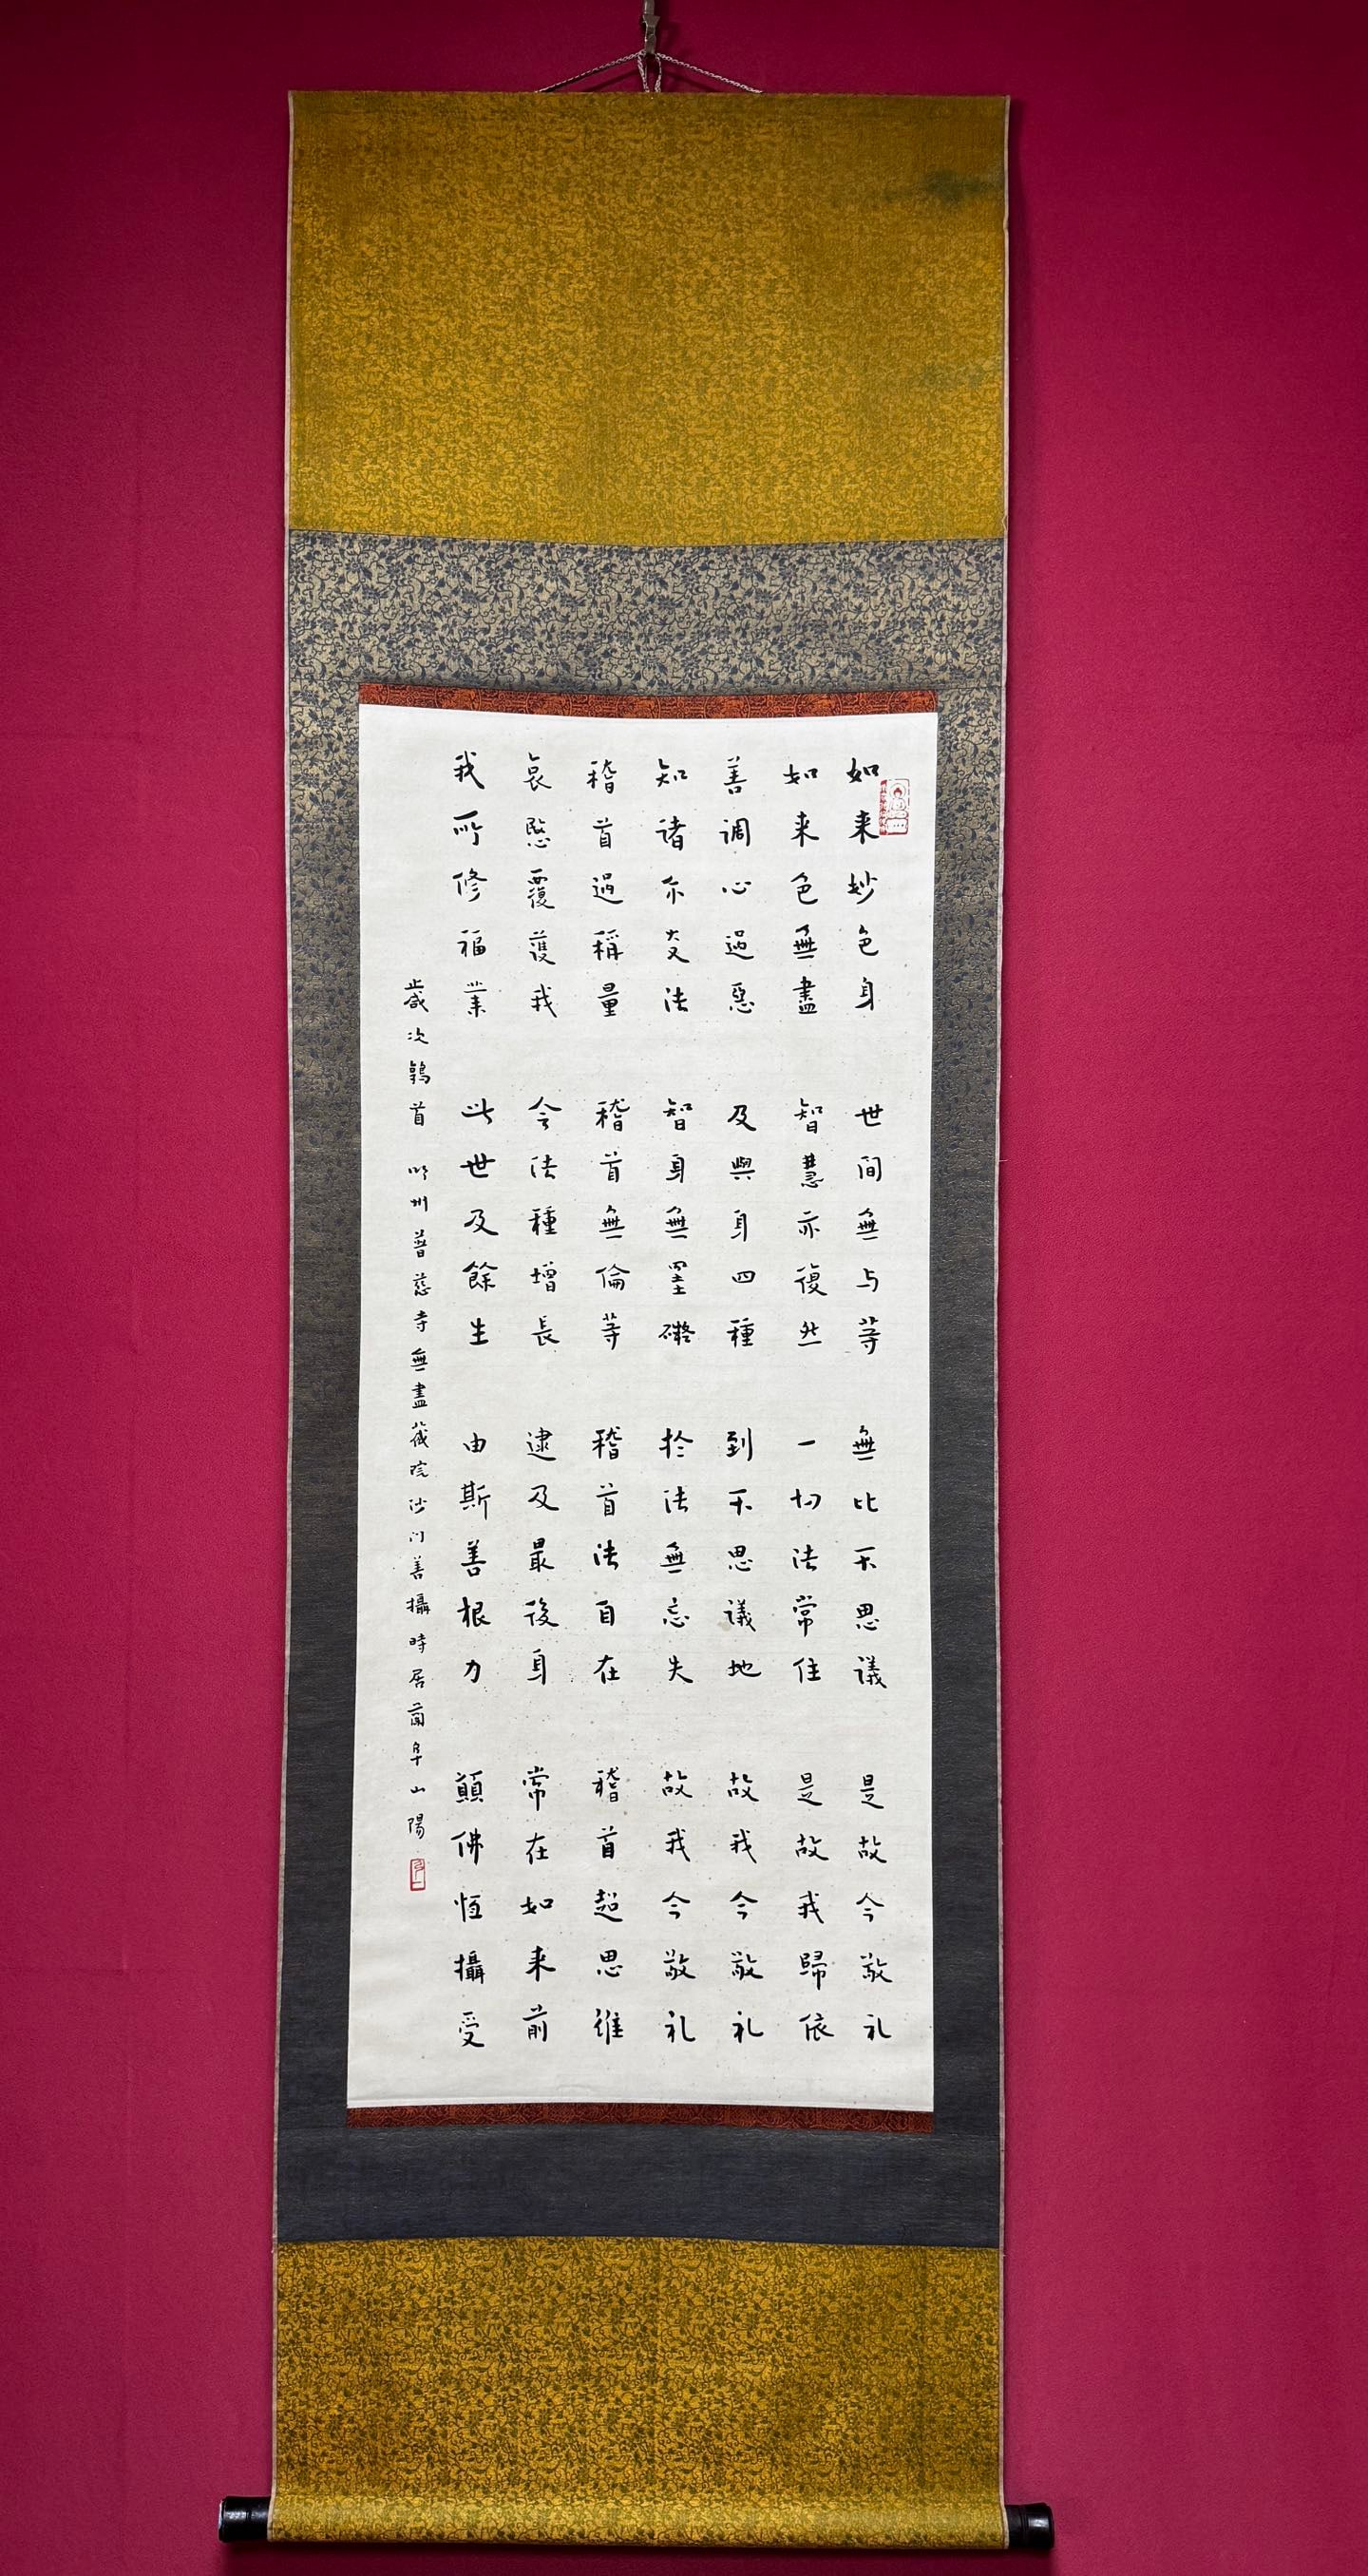 如来妙色身 世間無与等 無比不思議 是故今敬礼
如来色無盡 智慧亦復然 一切法常住 是故我歸依
善調心過惡 及與身四種 到不思議地 故我今敬礼
知諸尒炎法 智身無罣礙 於法無忘失 故我今敬礼
稽首過稱量 稽首無倫等 稽首法自在 稽首超思惟
哀愍覆護我 令法種增長 逮及最後身 常在如来前
我所修福業 此世及餘生 由斯善根力 願佛恆攝受
歲次鶉首 明州普慈寺無盡藏院沙门善攝時居蘭阜山陽